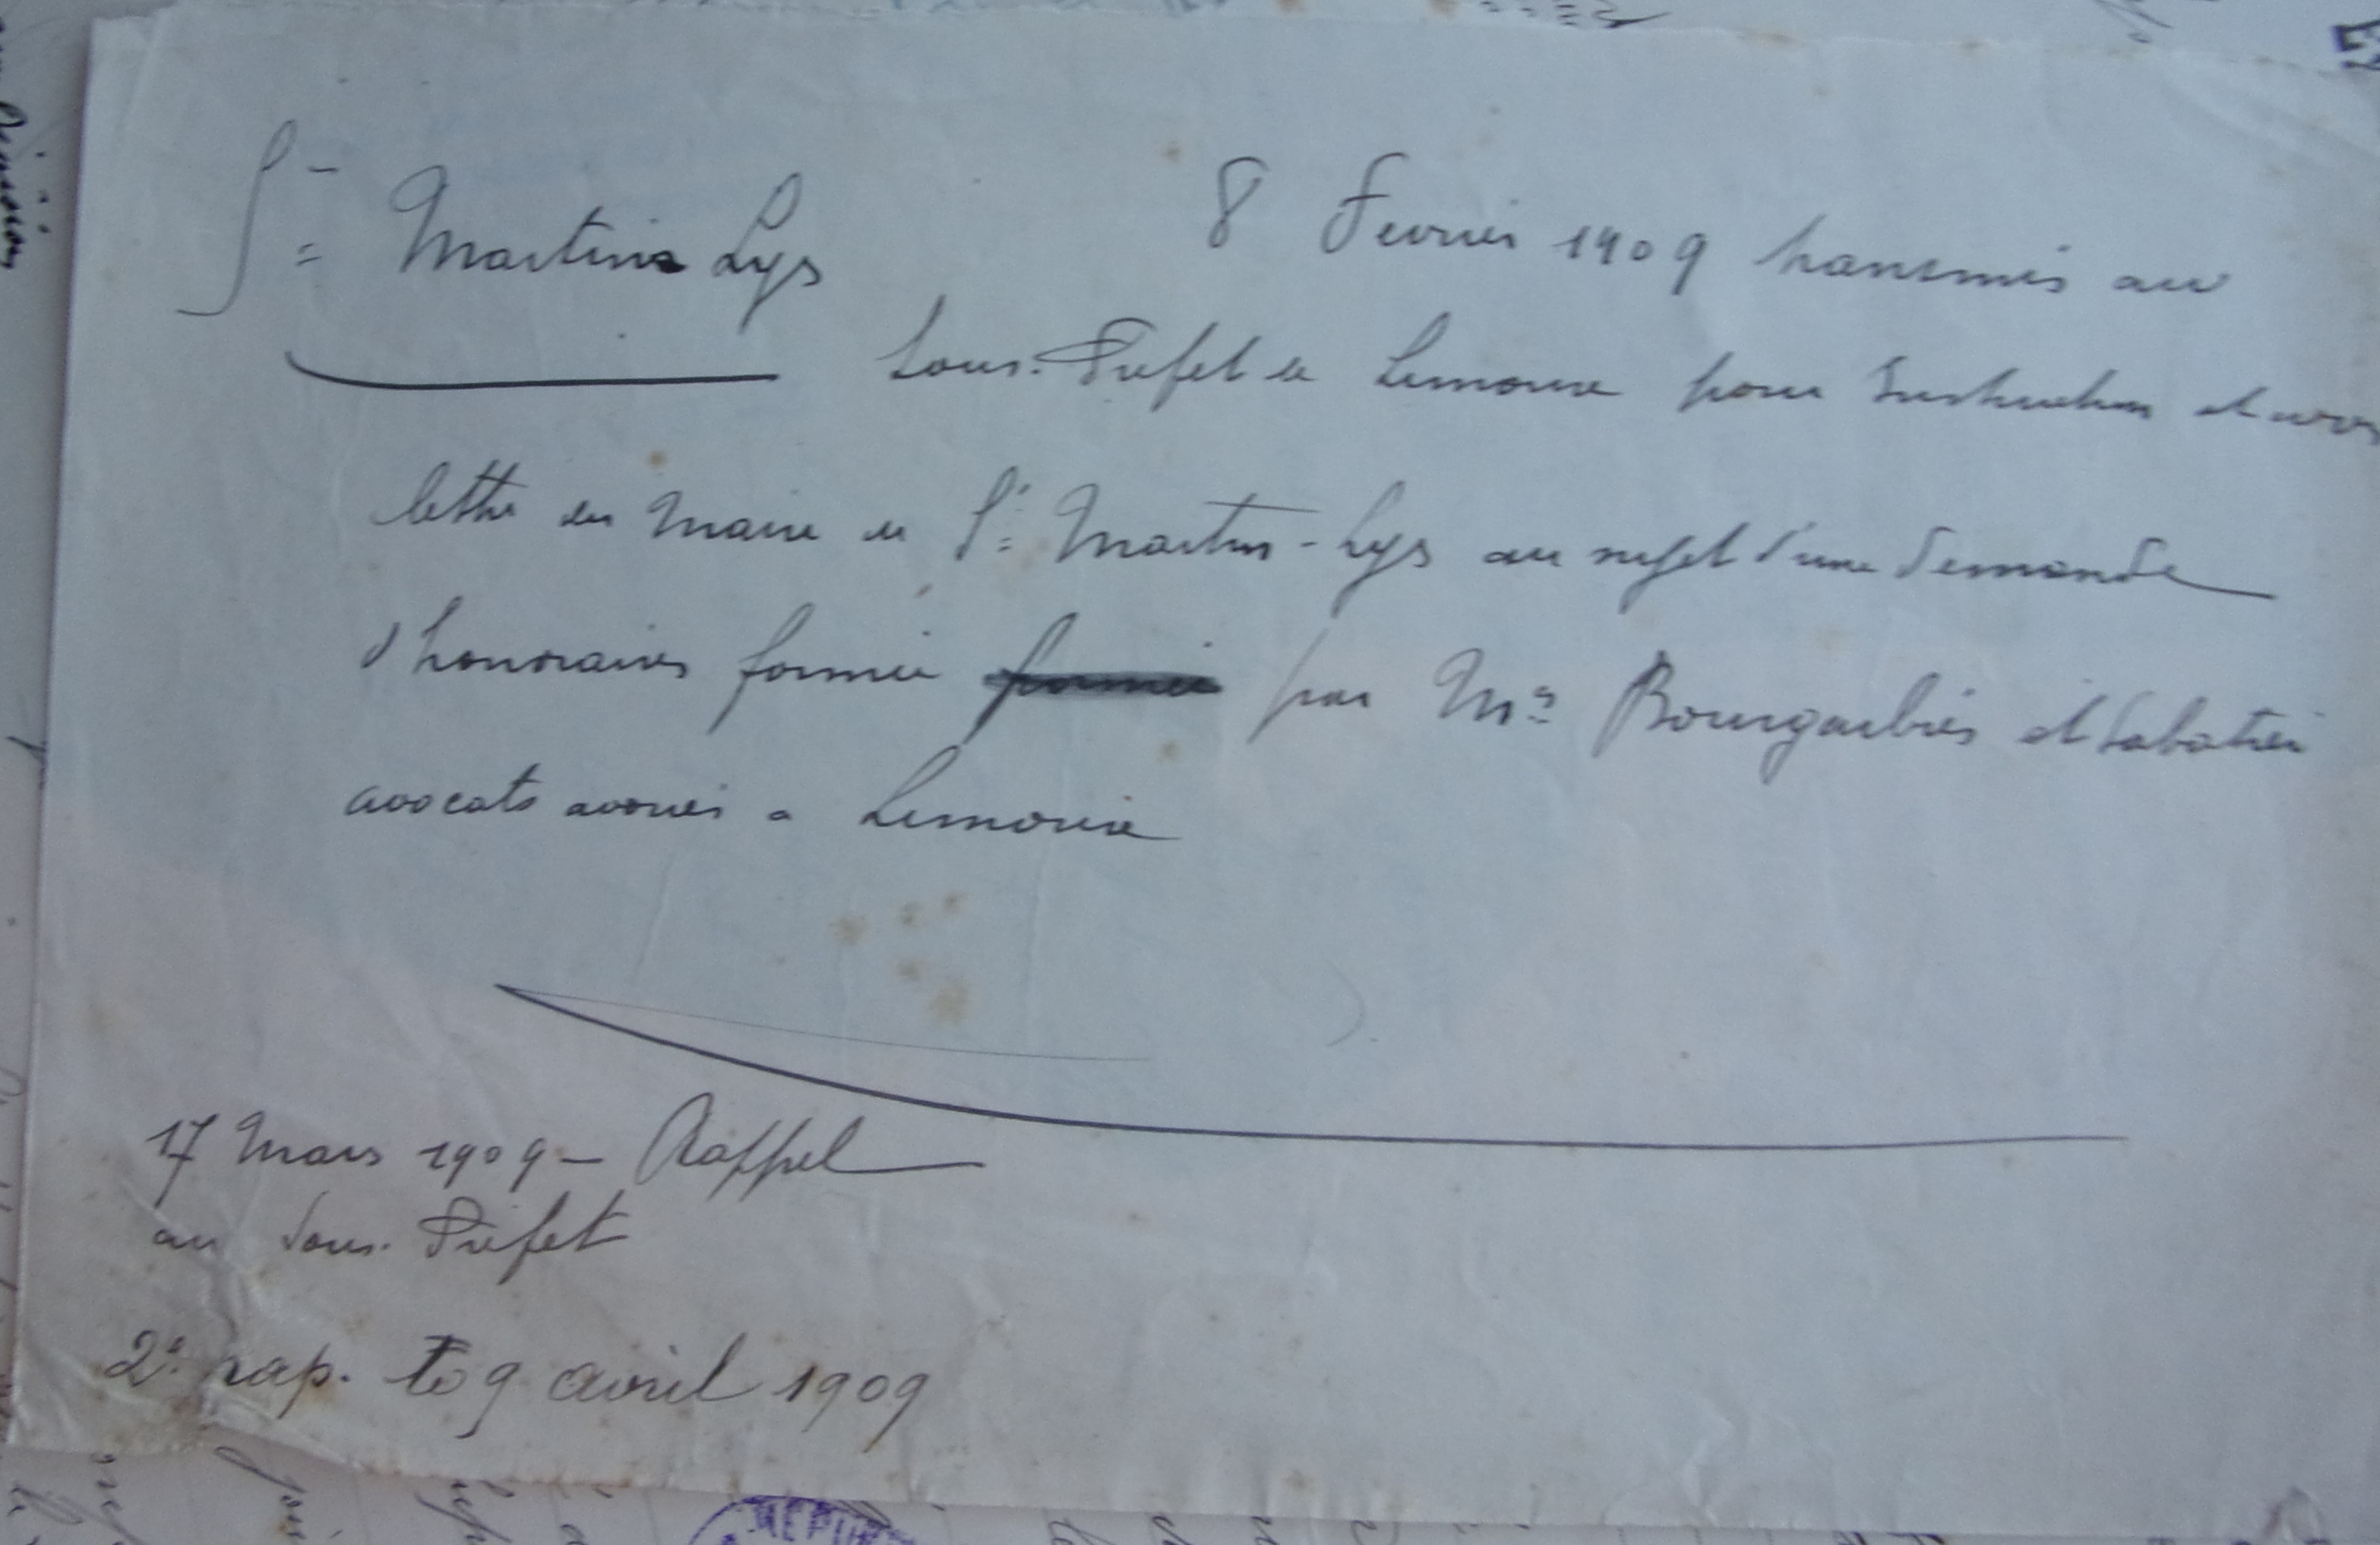 St Martin Lys
8 Fevrier 1909 transmis au
Sous-Préfet de Limoux pour Instruction et avis
lettre du Maire de St Martin-Lys au sujet d'une demande
d'honoraires formée formée par Mes et Sabatier
avocats avoués a Limoux
17 Mars 1909 - Rappel
au Sous-Préfet
2e rap. 9 avril 1909